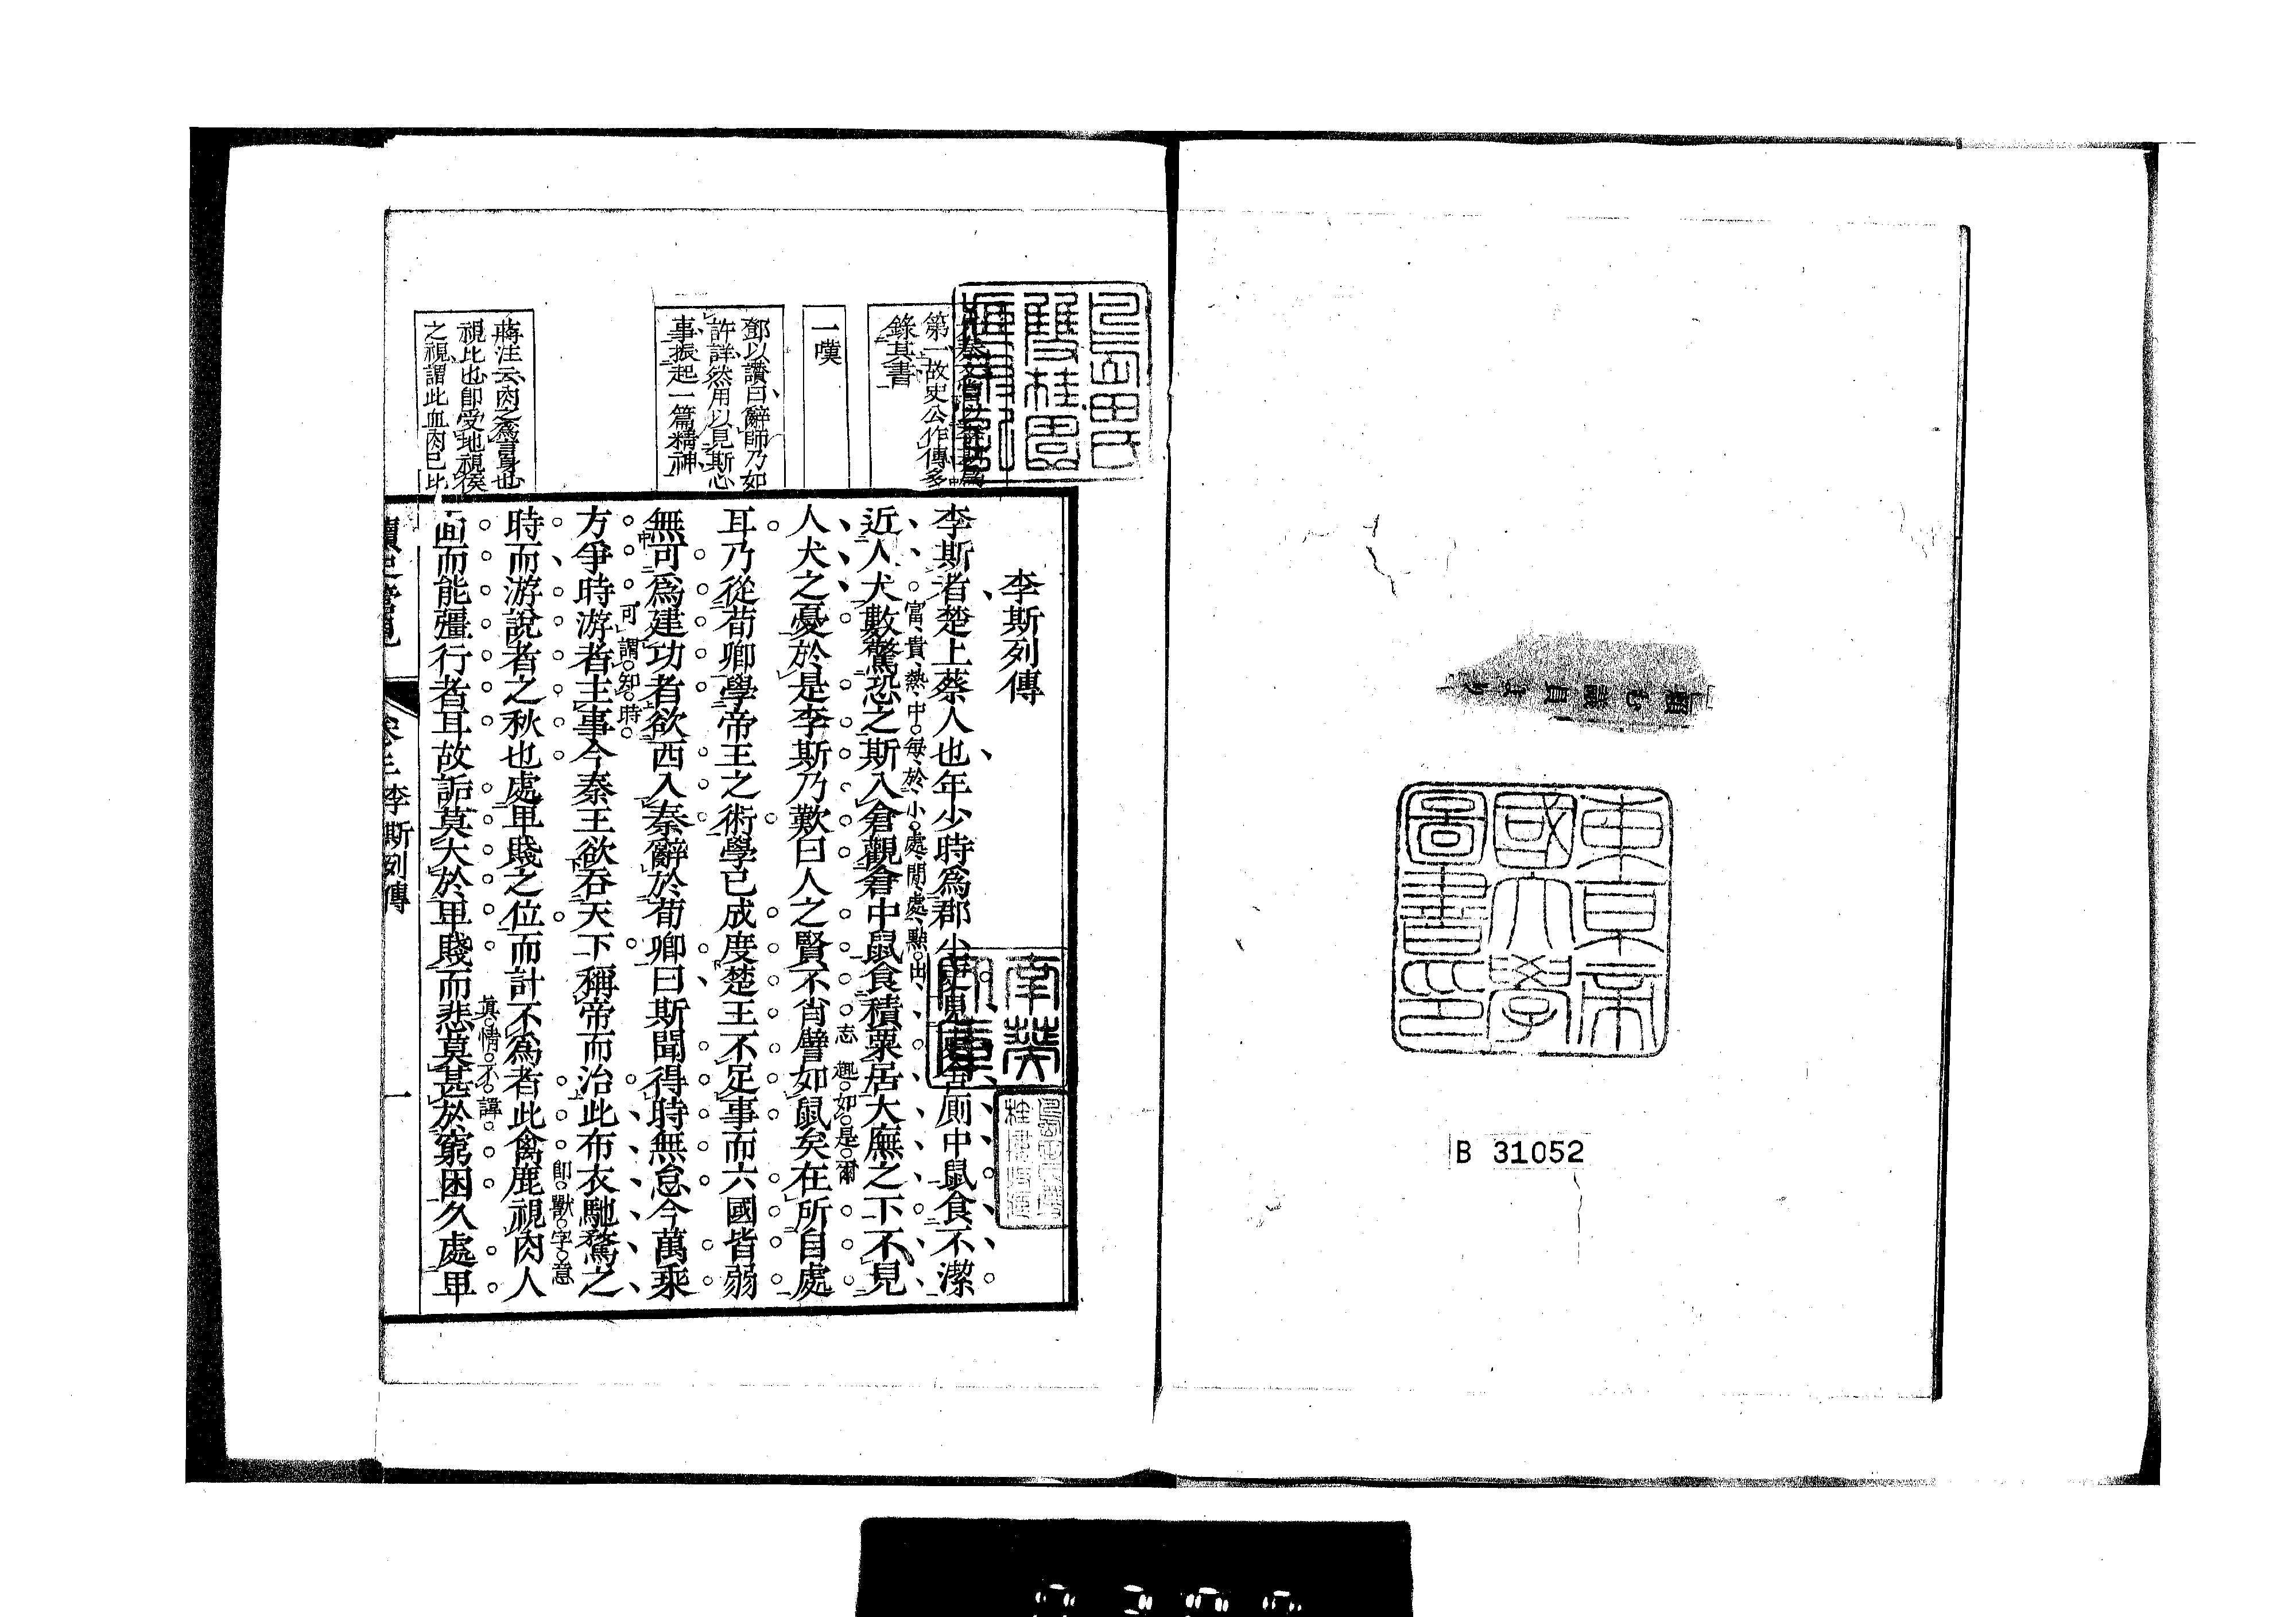 東京帝
國大學
圖書印
B 31052
第一故史公作傳多
錄其書
一嘆
鄧以讚曰辭師乃如
許詳然用以見斯心
事振起一篇精神
蔣注云肉之爲言身也
視比也卽受地視侯
之視謂此血肉已比
李斯列傳
李斯者楚上蔡人也年少時爲郡小吏見吏舍厠中鼠食不潔
富貴熱中每於小處閒處點出
近人犬數驚恐之斯入倉觀倉中鼠食積粟居大廡之下不見
志趣如是爾
人犬之憂於是李斯乃歎曰人之賢不肖譬如鼠矣在所自處
耳乃從荀卿學帝王之術學已成度楚王不足事而六國皆弱
無可爲建功者欲西入秦辭於荀卿曰斯聞得時無怠今萬乘
可謂知時
方爭時游者主事今秦王欲吞天下稱帝而治此布衣馳騖之
卽獸字意
時而游說者之秋也處卑賤之位而計不爲者此禽鹿視肉人
眞情不諱
面而能彊行者耳故詬莫大於卑賤而悲莫甚於窮困久處卑
李斯列傳
一